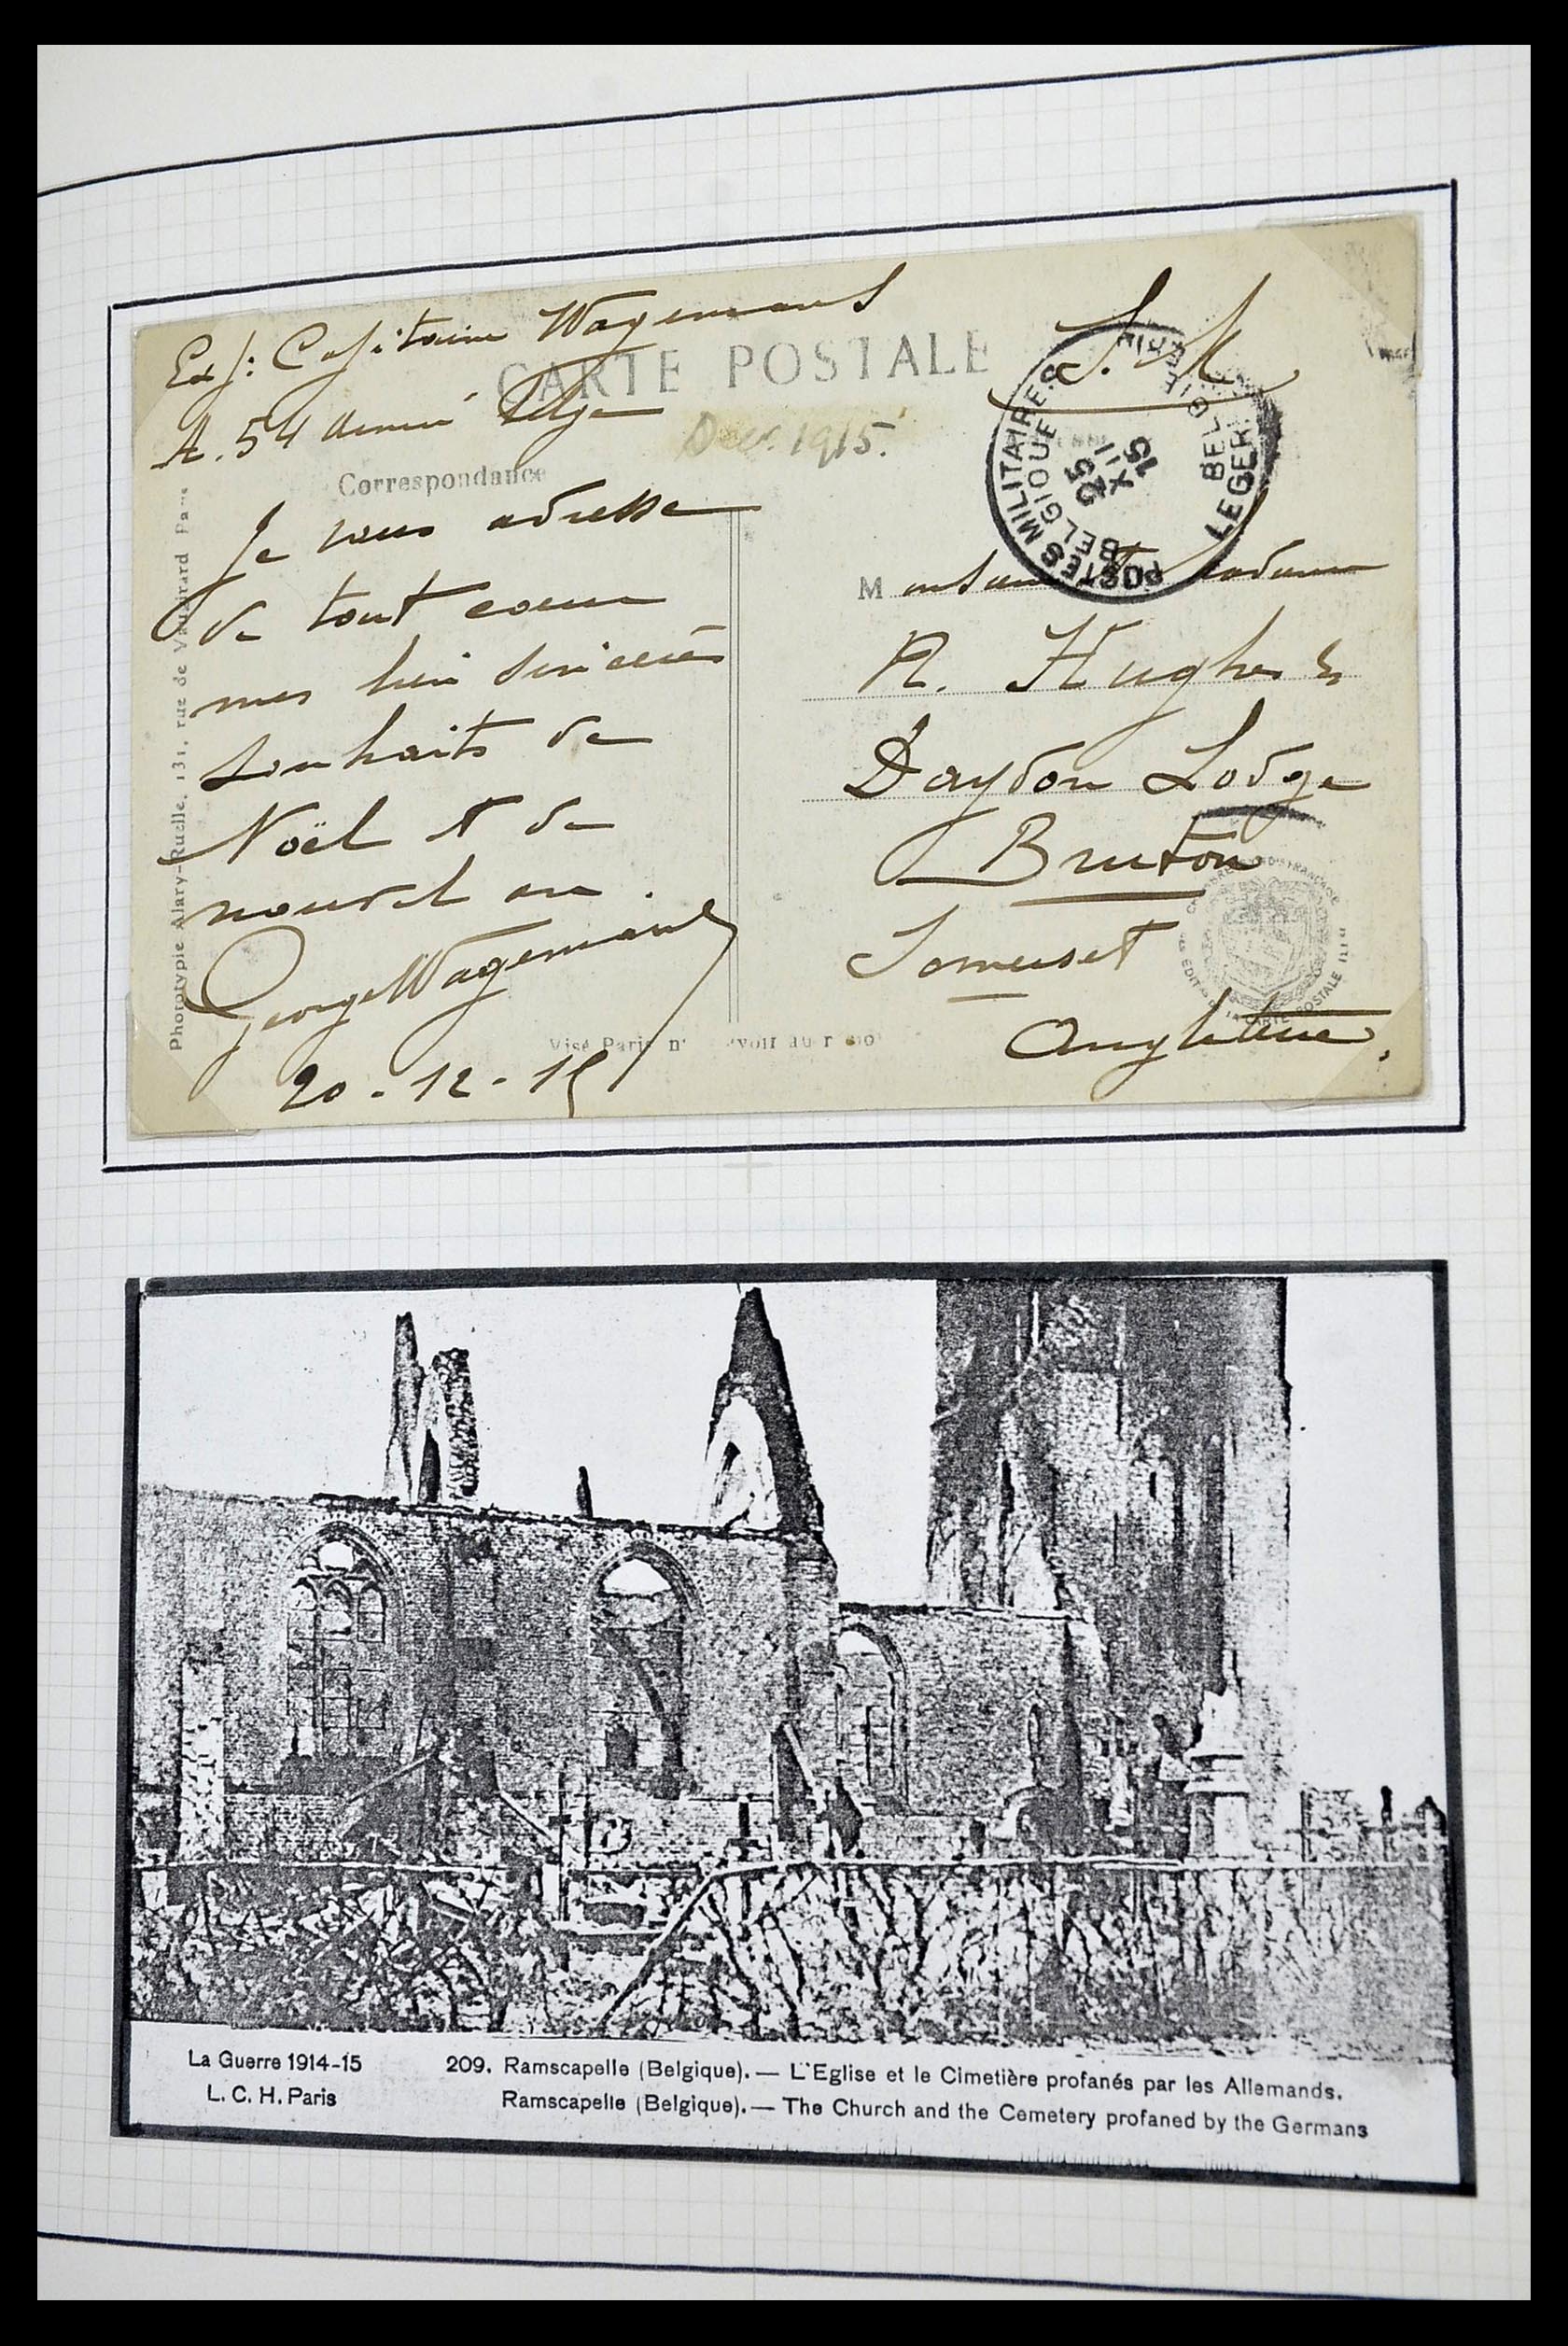 Exp: Capitaine Wagemans
A. 54 armée belge
CARTE POSTALE
S. M.
Dec. 1915.
Correspondance
POSTES MILITAIRES
BELGIQUE
25
XII
15
BELGIE
LEGER
Je vous adresse
de tout coeur
mes bien sincères
souhaits de
Noël et de
nouvel an.
George Wagemans
20-12-15
Monsieur et Madame
R. Hughes
Daydon Lodge
Bruton
Somerset
Angleterre.
Phototypie Alary-Ruelle, 131, rue de Vaugirard Paris
Visé Paris n°
La Guerre 1914-15
L. C. H. Paris
209. Ramscapelle (Belgique). — L'Eglise et le Cimetière profanés par les Allemands.
Ramscapelle (Belgique). — The Church and the Cemetery profaned by the Germans